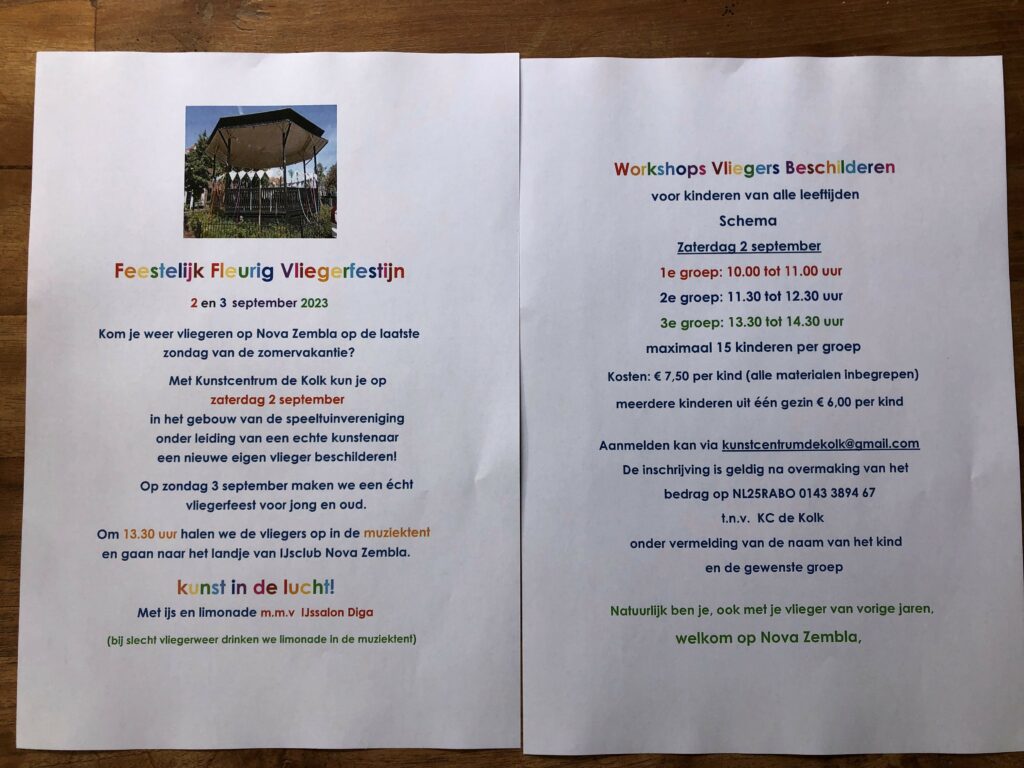 Feestelijk Fleurig Vliegerfestijn
2 en 3 september 2023
Kom je weer vliegeren op Nova Zembla op de laatste
zondag van de zomervakantie?
Met Kunstcentrum de Kolk kun je op
zaterdag 2 september
in het gebouw van de speeltuinvereniging
onder leiding van een echte kunstenaar
een nieuwe eigen vlieger beschilderen!
Op zondag 3 september maken we een écht
vliegerfeest voor jong en oud.
Om 13.30 uur halen we de vliegers op in de muziektent
en gaan naar het landje van IJsclub Nova Zembla.
kunst in de lucht!
Met ijs en limonade m.m.v IJssalon Diga
(bij slecht vliegerweer drinken we limonade in de muziektent)
Workshops Vliegers Beschilderen
voor kinderen van alle leeftijden
Schema
Zaterdag 2 september
1e groep: 10.00 tot 11.00 uur
2e groep: 11.30 tot 12.30 uur
3e groep: 13.30 tot 14.30 uur
maximaal 15 kinderen per groep
Kosten: € 7,50 per kind (alle materialen inbegrepen)
meerdere kinderen uit één gezin € 6,00 per kind
Aanmelden kan via kunstcentrumdekolk@gmail.com
De inschrijving is geldig na overmaking van het
bedrag op NL25RABO 0143 3894 67
t.n.v. KC de Kolk
onder vermelding van de naam van het kind
en de gewenste groep
Natuurlijk ben je, ook met je vlieger van vorige jaren,
welkom op Nova Zembla,